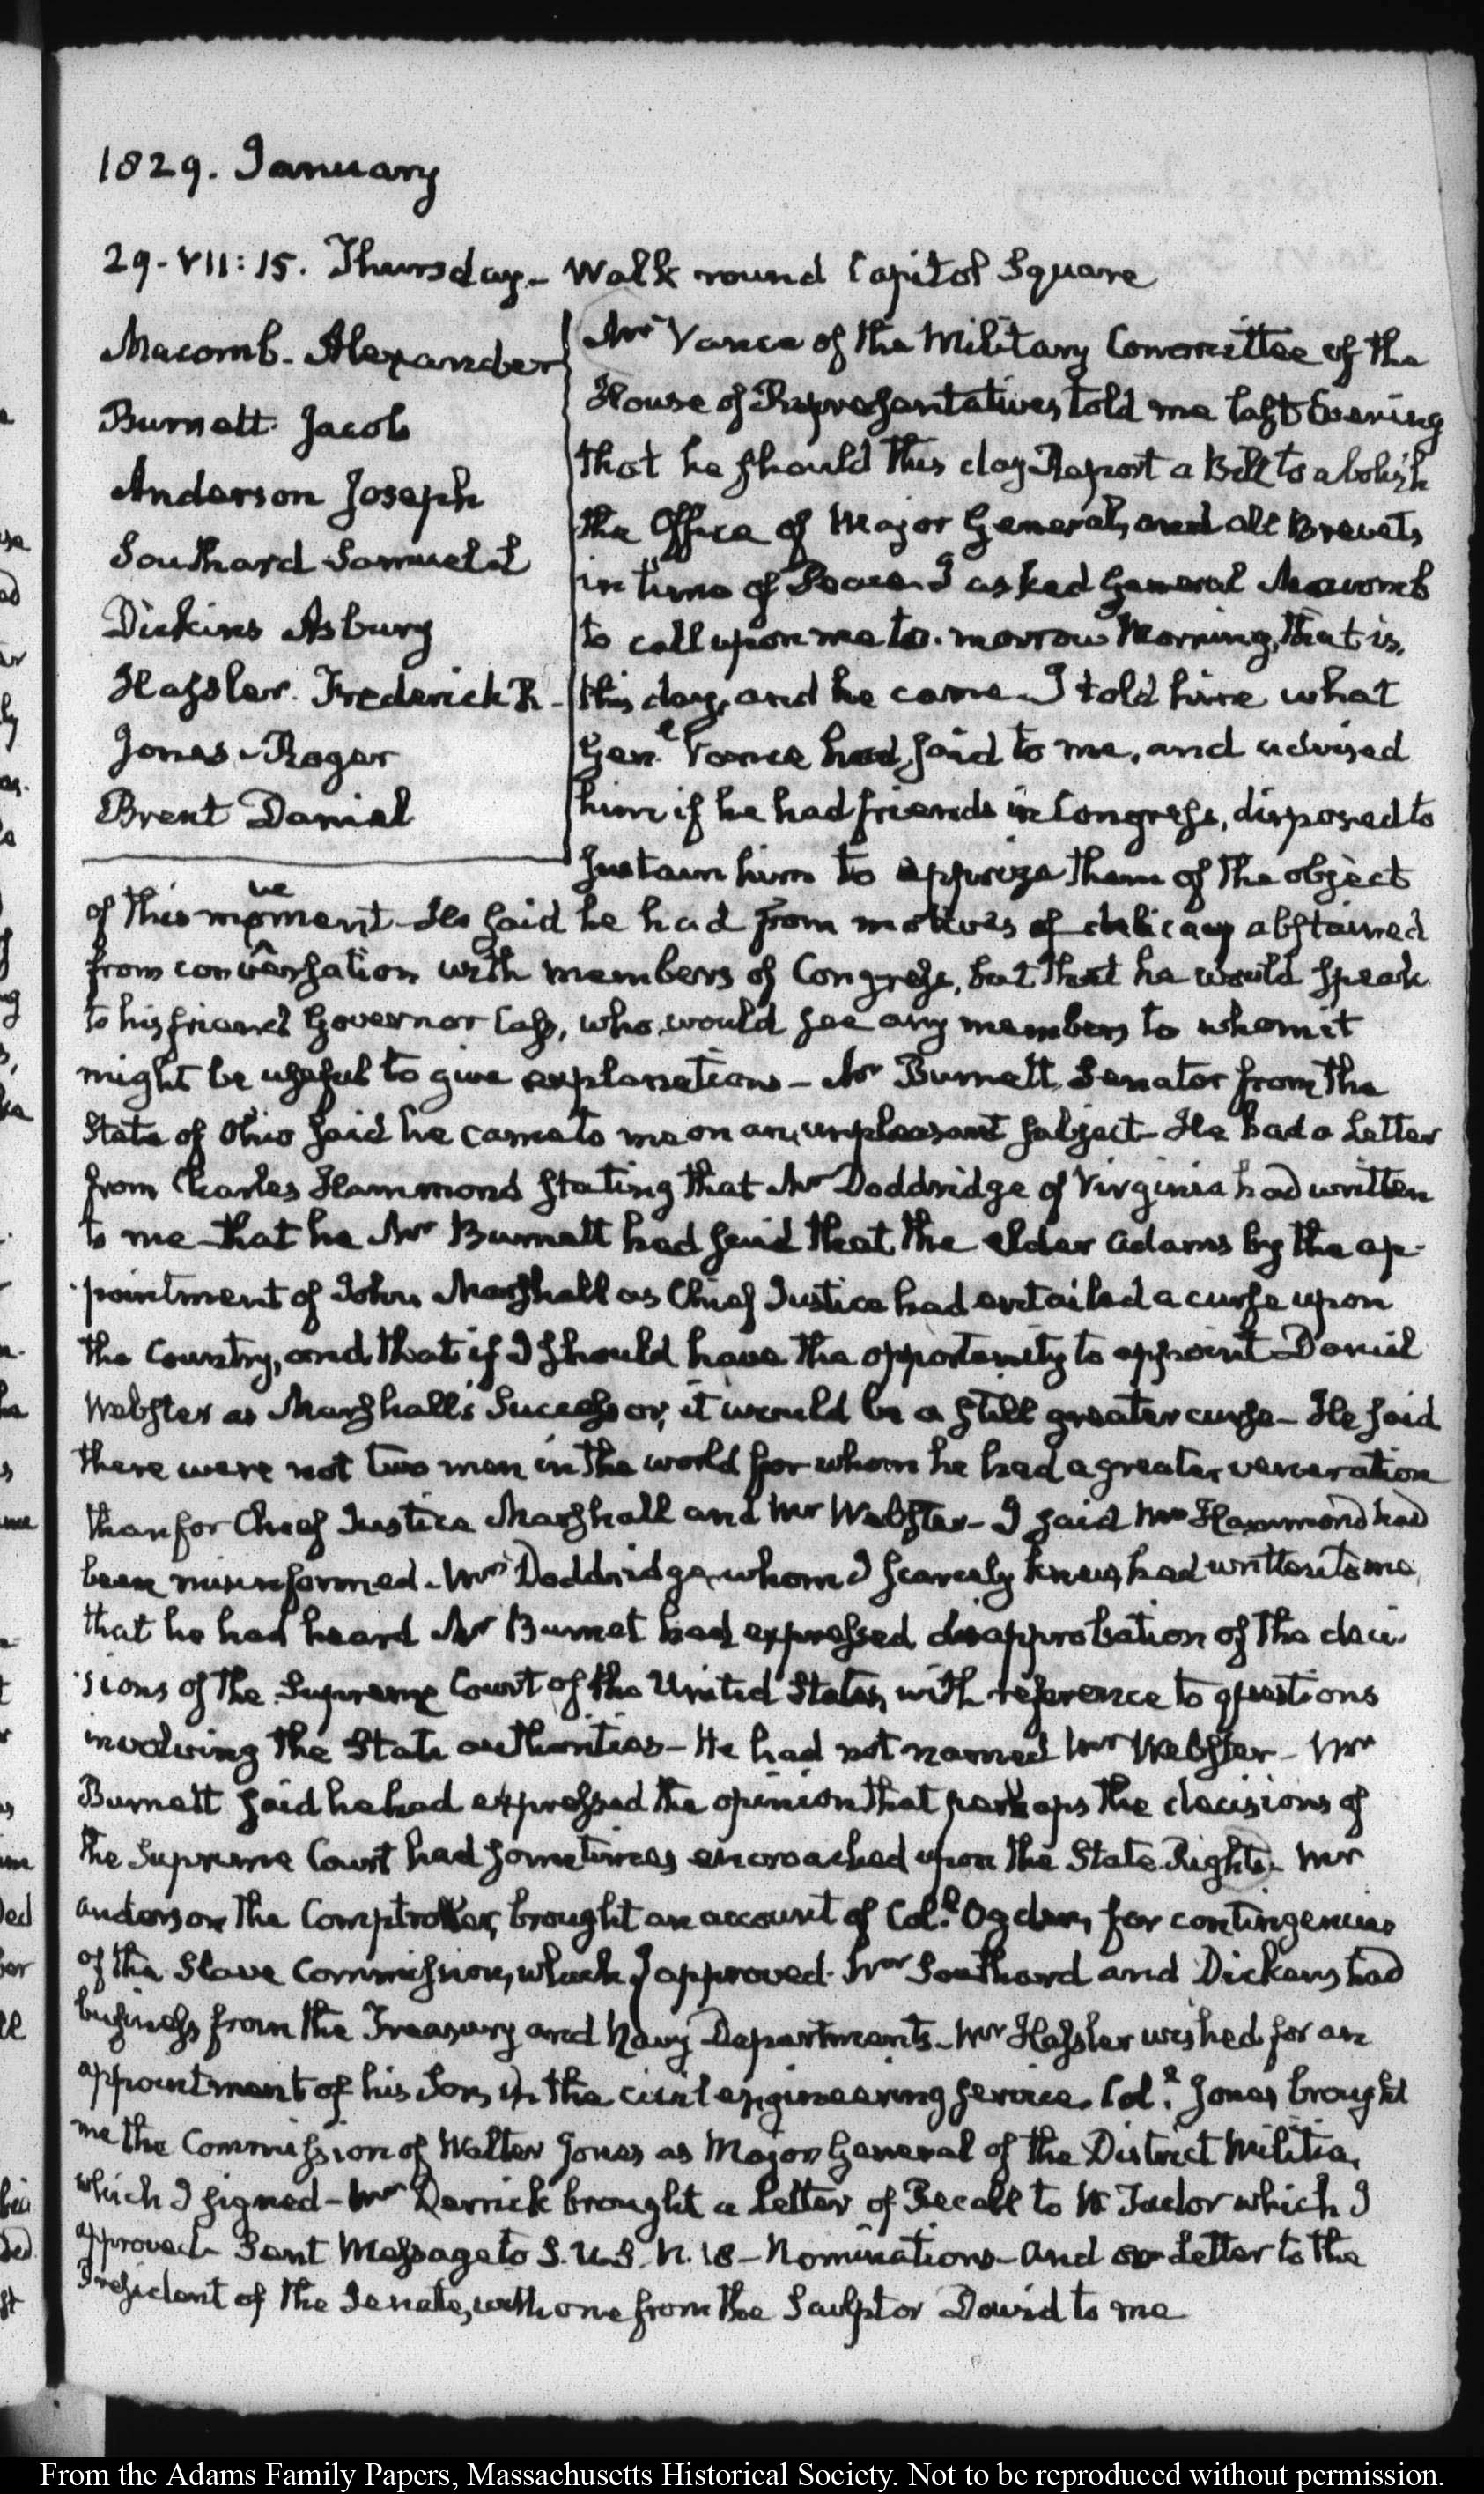 1829. January
29. VII:15. Thursday. Walk round Capitol Square
Macomb. Alexander
Burnett. Jacob
Anderson Joseph
Southard Samuel L
Dickins Asbury
Hassler. Frederick R.
Jones. Roger
Brent Daniel
Mr Vance of the Military Committee of the
House of Representatives, told me last Evening
that he should this day Report a Bill to abolish
the Office of Major General, and all Brevets,
in time of Peace. I asked General Macomb
to call upon me to-morrow Morning, that is,
this day, and he came. I told him what
Genl. Vance had said to me, and advised
him if he had friends in Congress, disposed to
sustain him to apprize them of the object
of this movement. He said he had from motives of delicacy abstained
from conversation with members of Congress, but that he would speak
to his friend Governor Cass, who would see any members to whom it
might be useful to give explanations – Mr Burnett, Senator from the
State of Ohio said he came to me on an unpleasant subject. He had a Letter
from Charles Hammond stating that Mr Doddridge of Virginia had written
to me that he Mr Burnett had said that the elder Adams by the ap-
-pointment of John Marshall as Chief Justice had entailed a curse upon
the Country, and that if I should have the opportunity to appoint Daniel
Webster as Marshall's Successor, it would be a still greater curse – He said
there were not two men in the world for whom he had a greater veneration
than for Chief Justice Marshall and Mr Webster – I said Mr Hammond had
been misinformed. Mr Doddridge, whom I scarcely knew, had written to me,
that he had heard Mr Burnet had expressed disapprobation of the deci-
-sions of the Supreme Court of the United States, with reference to questions
involving the State authorities – He had not named Mr Webster – Mr
Burnett said he had expressed the opinion that perhaps the decisions of
the Supreme Court had sometimes encroached upon the State Rights. Mr
Anderson the Comptroller, brought an account of Coll. Ogden, for contingencies
of the Slave Commission, which I approved. Mr Southard and Dickens had
business from the Treasury and Navy Departments. Mr Hassler wished for an
appointment of his Son, in the civil engineering service. Coll. Jones brought
me the Commission of Walter Jones as Major General of the District Militia,
which I signed – Mr Derrick brought a Letter of Recall to W Tudor which I
approved. Sent Message to S.U.S. N. 18 – Nominations – And a Letter to the
President of the Senate, with one from the Sculptor David to me
From the Adams Family Papers, Massachusetts Historical Society. Not to be reproduced without permission.